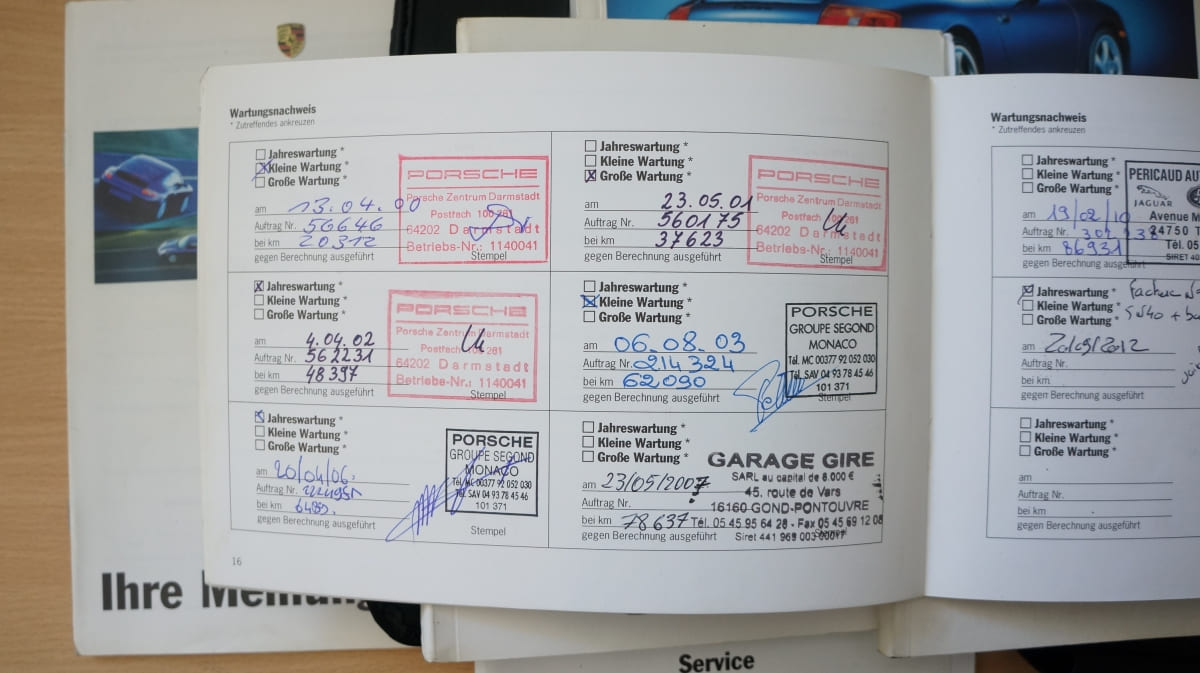 Wartungsnachweis
* Zutreffendes ankreuzen
Jahreswartung *
Kleine Wartung *
Große Wartung *
am 13.04.00
Auftrag Nr. 56646
bei km 20312
gegen Berechnung ausgeführt
PORSCHE
Porsche Zentrum Darmstadt
Postfach 100 261
64202 Darmstadt
Betriebs-Nr.: 1140041
Stempel
Jahreswartung *
Kleine Wartung *
Große Wartung *
am 23.05.01
Auftrag Nr. 560175
bei km 37623
gegen Berechnung ausgeführt
PORSCHE
Porsche Zentrum Darmstadt
Postfach 100 261
64202 Darmstadt
Betriebs-Nr.: 1140041
Stempel
Jahreswartung *
Kleine Wartung *
Große Wartung *
am 4.04.02
Auftrag Nr. 562231
bei km 48397
gegen Berechnung ausgeführt
PORSCHE
Porsche Zentrum Darmstadt
Postfach 100 261
64202 Darmstadt
Betriebs-Nr.: 1140041
Stempel
Jahreswartung *
Kleine Wartung *
Große Wartung *
am 06.08.03
Auftrag Nr. 214324
bei km 62090
gegen Berechnung ausgeführt
PORSCHE
GROUPE SEGOND
MONACO
Tél. MC 00377 92 052 030
Tél. SAV 04 93 78 45 46
101 371
Stempel
Jahreswartung *
Kleine Wartung *
Große Wartung *
am 20/04/06
Auftrag Nr.
bei km
gegen Berechnung ausgeführt
PORSCHE
GROUPE SEGOND
MONACO
Tél. MC 00377 92 052 030
Tél. SAV 04 93 78 45 46
101 371
Stempel
Jahreswartung *
Kleine Wartung *
Große Wartung *
am 23/05/2007
Auftrag Nr.
bei km 78637
gegen Berechnung ausgeführt
GARAGE GIRE
SARL au capital de 8.000 €
45, route de Vars
16160 GOND-PONTOUVRE
Tél. 05 45 95 64 28 - Fax 05 45 69 12 08
Siret 441 969 003 00017
Stempel
16
Wartungsnachweis
* Zutreffendes ankreuzen
Jahreswartung *
Kleine Wartung *
Große Wartung *
am 19/02/10
Auftrag Nr.
bei km 86931
gegen Berechnung ausgeführt
PERICAUD AUT
JAGUAR
Avenue
24750 T
Tél. 05
SIRET 40
Jahreswartung *
Kleine Wartung *
Große Wartung *
am 20/09/2012
Auftrag Nr.
bei km
gegen Berechnung ausgeführt
Jahreswartung *
Kleine Wartung *
Große Wartung *
am
Auftrag Nr.
bei km
gegen Berechnung ausgeführt
Ihre Meinung
Service